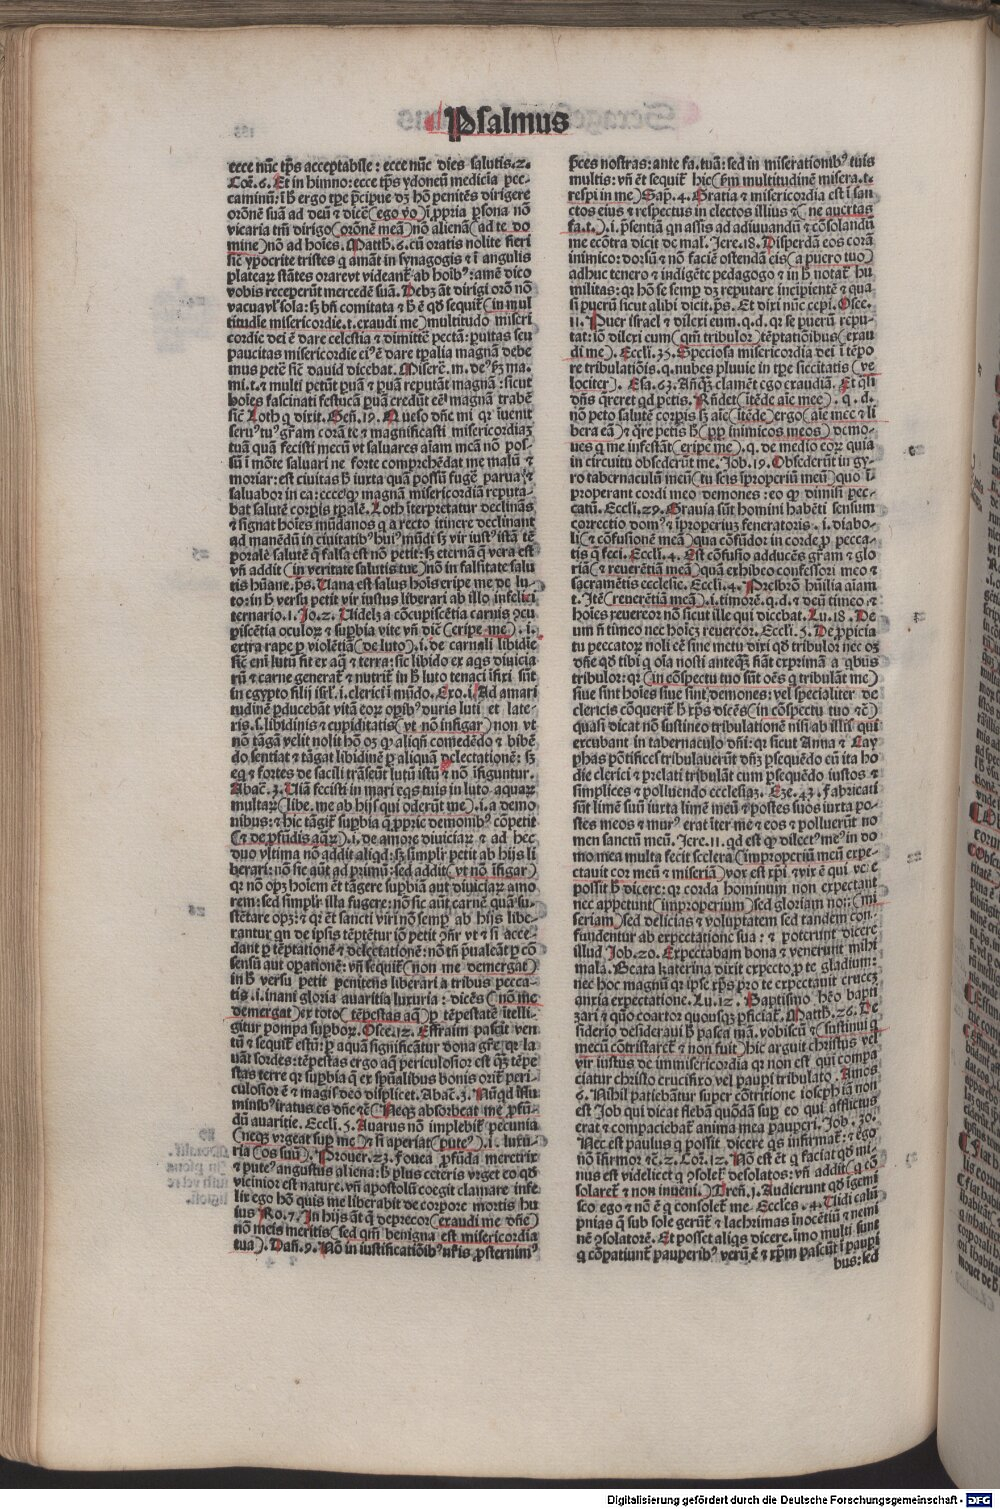 Psalmus
ecce nūc tp̄s acceptabile: ecce nūc dies salutis. 2.
Coꝛ. 6. Et in himno: ecce tp̄s ydoneū medicīa pec-
caminū: i h̄ ergo tp̄e p̄cipue dꝫ hō penitēs dirigere
orōnē suā ad deū ⁊ dicē (ego v̄o) i ꝓpria p̄sona nō
vicaria tm̄ dirigo (orōnē meā) nō alienā (ad te do
mine) nō ad hoīes. Matth. 6. cū oratis nolite fieri
sic̄ ypocrite tristes q amāt in synagogis ⁊ ī angulis
platearꝝ stātes orare vt videant᷑ ab hoībꝰ: amē dico
vobis receperūt mercedē suā. Debꝫ āt dirigi orō nō
vacua vl̓ sola: sꝫ bn̄ comitata ⁊ h̄ ē qd̓ sequit᷑ (in mul
titudīe misericordie. t. exaudi me) multitudo miseri
cordie dei ē dare celestia ⁊ dimittē pctā: ꝑuitas seu
paucitas misericordie eiꝰ ē dare tp̄alia magnā debe
mus petē sic̄ dauid dicebat. Miserē. m. de⁹ ẜꝫ ma.
mi. t. ⁊ multi petūt ꝑuā ⁊ ꝑuā reputāt magnā: sicut
hoīes fascinati festucā ꝑuā credūt eē magnā trabē
sic̄ Loth q dixit. Gen̄. 19. Queso dn̄e mi qꝛ īuenit
seruꝰ tuꝰ gr̄am corā te ⁊ magnificasti misericordiaꝫ
tuā quā fecisti mecū vt saluares aīam meā nō pos-
sū ī mōte saluari ne forte comprehēdat me malū ⁊
moriar: est ciuitas h̄ iuxta quā possū fugē parua ⁊
saluabor in ea: ecce qꝫ magnā misericordiā reputa-
bat salutē corꝑis tꝑalē. Loth īterpretatur declinās
⁊ signat hoīes mūdanos q a recto itinere declinant
ad manēdū in ciuitatibꝰ huiꝰ mūdi sꝫ vir iustꝰ istā tē
poralē salutē q̄ falsa est nō petit: sꝫ eternā q̄ vera est
vn̄ addit (in veritate salutis tue) nō in falsitate salu
tis hūane. ps. Uana est salus hoīs eripe me de lu-
to: in h̄ versu petit vir iustus liberari ab illo infelici
ternario. 1. Jo. 2. Uidelꝫ a cōcupiscētia carnis ꝯcu
piscētia oculoꝝ ⁊ suꝑbia vite vn̄ dic̄ (eripe me). i.
extra rape ꝑ violētiā (de luto). i. de carnali libidīe
sic̄ eni lutū fit ex aq̄ ⁊ terra: sic libido ex aqs diuicia
rū ⁊ carne generat᷑ ⁊ nutrit᷑ in h̄ luto tenaci īfixi sūt
in egypto filij isrl̓. i. clerici ī mūdo. Exo. i. Ad amari
tudinē ꝑducebāt vitā eorꝝ oꝑibꝰ duris luti et late-
ris. s. libidinis ⁊ cupiditatis (vt nō infigar) non vt
nō tāgā velit nolit hō oꝫ ꝙ aliqn̄ comedēdo ⁊ bibē
do sentiat ⁊ tāgat libidinē ꝑ aliquā delectationē: sꝫ
eq̄ ⁊ fortes de facili trāseūt lutū istū ⁊ nō īfiguntur.
Abac̄. 3. Uiā fecisti in mari eqs tuis in luto aquarꝝ
multarꝝ (libe. me ab hijs qui oderūt me). i. a demo
nibus: ⁊ hic tāgit᷑ suꝑbia q̄ ꝓprie demonibꝰ cōpetit
(⁊ de ꝓfūdis aq̄rꝝ). i. de amore diuiciarꝝ ⁊ ad hec
duo vltima nō addit aliqd: sꝫ simplr̄ petit ab hijs li
berari: nō sic aūt ad primū: sed addit (vt nō īfigar)
qꝛ nō opꝫ hoīem ēt tāgere suꝑbiā aut diuiciarꝝ amo
rem: sed simplr̄ illa fugere: nō sic aūt carnē quā su-
stētare opꝫ: ⁊ qꝛ ēt sancti viri nō semꝑ ab hijs libe-
rantur qn̄ de ipsis tēptētur iō petit ꝯn̄r vt ⁊ si acce-
dant ꝑ tēptationē ⁊ delectationē: nō tn̄ p̄ualeāt ꝑ cō
sensū aut oꝑationē: vn̄ sequit᷑ (non me demergat)
in h̄ versu petit penitens liberari a tribus pecca-
tis. i. inani gloria auaritia luxuria: dicēs (nō me
demergat) ex toto (tēpestas aq̄) ꝑ tēpestatē itelli-
gitur pompa suꝑboꝝ. Osee. 12. Effraim pascit ven
tū ⁊ sequit᷑ estū: ꝑ aquā significātur dona gr̄e: qꝛ la-
uāt sordes: tēpestas ergo aq̄ periculosior est qꝫ tēpe
stas terre qꝛ suꝑbia q̄ ex spūalibus bonis orit᷑ peri-
culosior ē ⁊ magis deo displicet. Abac̄. 3. Nūqd ī flu
minibꝰ iratus es dn̄e ⁊c̄ (Neqꝫ absorbeat me ꝓfū-
dū auaritie. Eccli. 5. Auarus nō implebit᷑ pecunia
(neqꝫ vrgeat suꝑ me ⁊ si aperiat (puteꝰ). i. luxu-
ria (os suū). Prouer. 23. fouea ꝓfūda meretrix
⁊ puteꝰ angustus aliena: h̄ plus ceteris vrget eo qd̓
vicinior est nature. vn̄ apostolū coegit clamare infe
lix ego hō quis me liberabit de corpore mortis hu
ius Ro. 7. In hijs āt q̄ deprecor (exaudi me dn̄e)
nō meis meritis (sed qm̄ benigna est misericordia
tua). Dan̄. 9. Nō in iustificatiōibꝰ nr̄is ꝓsternimꝰ
p̄ces nostras: ante fa. tuā: sed in miserationibꝰ tuis
multis: vn̄ ēt sequit᷑ hic (ẜm multitudinē misera. t.
respi in me) Sap. 4. Gratia ⁊ misericordia est ī san
ctos eius ⁊ respectus in electos illius ⁊ (ne auertas
fa. t.). i. p̄sentiā qn assīs ad adiuuandū ⁊ cōsolandū
me ecōtra dicit de mal. Jere. 18. Disperdā eos corā
inimico: dorsū ⁊ nō faciē ostendā eis (a puero tuo)
adhuc tenero ⁊ indigēte pedagogo ⁊ in h̄ notat᷑ hu
militas: qꝛ hō se semꝑ dꝫ reputare incipientē ⁊ qua
si puerū sicut alibi dicit. ps. Et dixi nūc cepi. Osee.
11. Puer israel ⁊ dilexi eum. q. d. qꝛ se puerū repu-
tat: iō dilexi cum (qm̄ tribulor) tēptatiōibus (exau
di me). Eccli. 35. Speciosa misericordia dei ī tēpo
re tribulatiōis. q. nubes pluuie in tp̄e siccitatis (ve
lociter). Esa. 63. Anq̄ꝫ clamēt ego exaudiā. Et qsi
dn̄s q̄reret qd petis. Rn̄det (itēde aīe mee). q. d.
nō peto salutē corꝑis sꝫ aīe (itēde) ergo (aīe mee ⁊ li
bera eā) ⁊ q̄re petis h̄ (ꝓp̄ inimicos meos) demo-
ues q me infestāt (eripe me). q. de medio eorꝝ quia
in circuitu obsederūt me. Job. 19. Obsederūt in gy-
ro tabernaculū meū (tu scis īproperiū meū) quo ī-
properant cordi meo demones: eo ꝙ dimisi pec-
catū. Eccli. 29. Grauia sūt homini habēti sensum
correctio domꝰ ⁊ īproperiuꝫ feneratoris. i. diabo-
li (⁊ cōfusionē meā) qua cōfūdor in corde ꝓ pecca-
tis q̄ feci. Eccli. 4. Est cōfusio adducēs gr̄am ⁊ glo
riā (⁊ reuerētiā meā) quā exhibeo confessori meo ⁊
sacramētis ecclesie. Eccli. 4. Presbr̄o hūilia aīam
t. Jtē (reuerētiā meā). i. timorē. q. d. ⁊ deū timeo ⁊
hoīes reuereor nō sicut ille qui dicebat. Lu. 18. De
um n̄ timeo nec hoīeꝫ reuereor. Eccli. 5. De ꝓpicia
tu peccatorꝝ noli eē sine metu dixi qd̓ tribulor nec oꝫ
dn̄e qd̓ tibi q oīa nosti anteq̄ꝫ fiāt exprimā a qbus
tribulor: qꝛ (in cōspectu tuo sūt oēs q tribulāt me)
siue sint hoīes siue sint demones: vel specialiter de
clericis cōquerit᷑ h̄ xp̄s dicēs (in cōspectu tuo ⁊c̄)
quasi dicat nō sustineo tribulationē nisi ab illis qui
excubant in tabernaculo dn̄i: qꝛ sicut Anna ⁊ Cay
phas pōtifices tribulauerūt dn̄ꝫ ꝑsequēdo eū ita ho
die clerici ⁊ prelati tribulāt cum ꝑsequēdo iustos ⁊
simplices ⁊ polluendo ecclesiaꝫ. Eze. 43. fabricati
sunt limē suū iuxta limē meū ⁊ postes suos iuxta po-
stes meos ⁊ murꝰ erat īter me ⁊ eos ⁊ polluerūt no
men sanctū meū. Jere. 11. qd est ꝙ dilectꝰ meꝰ in do
mo mea multa fecit scelera (improperiū meū expe-
ctauit cor meū ⁊ miseriā) vox est xp̄i ⁊ vix ē qui ve e
possit h̄ dicere: qꝛ corda hominum non expectant
nec appetunt (improperium) sed gloriam non: (mi
seriam) sed delicias ⁊ voluptatem sed tandem con-
fundentur ab expectatione sua: ⁊ poterunt dicere
illud Job. 20. Expectabam bona ⁊ venerunt mihi
mala. Beata katerina dixit expecto ꝓ te gladium:
nec hoc magnū qꝛ ipse xp̄s ꝓro te expectauit cruceꝫ
anxia expectatione. Lu. 12. Baptismo hēo bapti
zari ⁊ quō coartor quousqꝫ ꝑficiat᷑. Matth. 26. De
siderio desideraui h̄ pasca mā. vobiscū ⁊ (sustinui q
mecū cōtristaret᷑ ⁊ non fuit) hic arguit christus vel
vir iustus de immisericordia qꝛ non est qui compa
ciatur christo crucifixo vel pauꝑi tribulato. Amos
6. Nihil patiebātur super cōtritione ioseph iā non
est Job qui dicat flebā quōdā suꝑ eo qui afflictus
erat ⁊ compaciebat᷑ anima mea pauperi. Job. 30.
Nec est paulus q possit dicere qs infirmat᷑: ⁊ ego
nō īfirmor ⁊c̄. 2. Coꝛ. 12. Nō est ēt q faciat qd̓ mi-
nus est videlicet q ꝯsolet᷑ desolatos: vn̄ addit (q cō
solaret᷑ ⁊ non inueni.) Tren̄. 1. Audierunt qd̓ igemi
sco ego ⁊ nō ē q consolet᷑ me. Eccles. 4. Uidi calū
pnias q̄ sub sole gerūt᷑ ⁊ lachrimas īnocētiū ⁊ nemi
nē ꝯsolatorē. Et posset aliqs dicere. imo multi sunt
q cōpatiunt᷑ pauperibꝰ verū ē ⁊ xp̄m pascūt ī pauꝑi
bus: sed
Digitalisierung gefördert durch die Deutsche Forschungsgemeinschaft - DFG